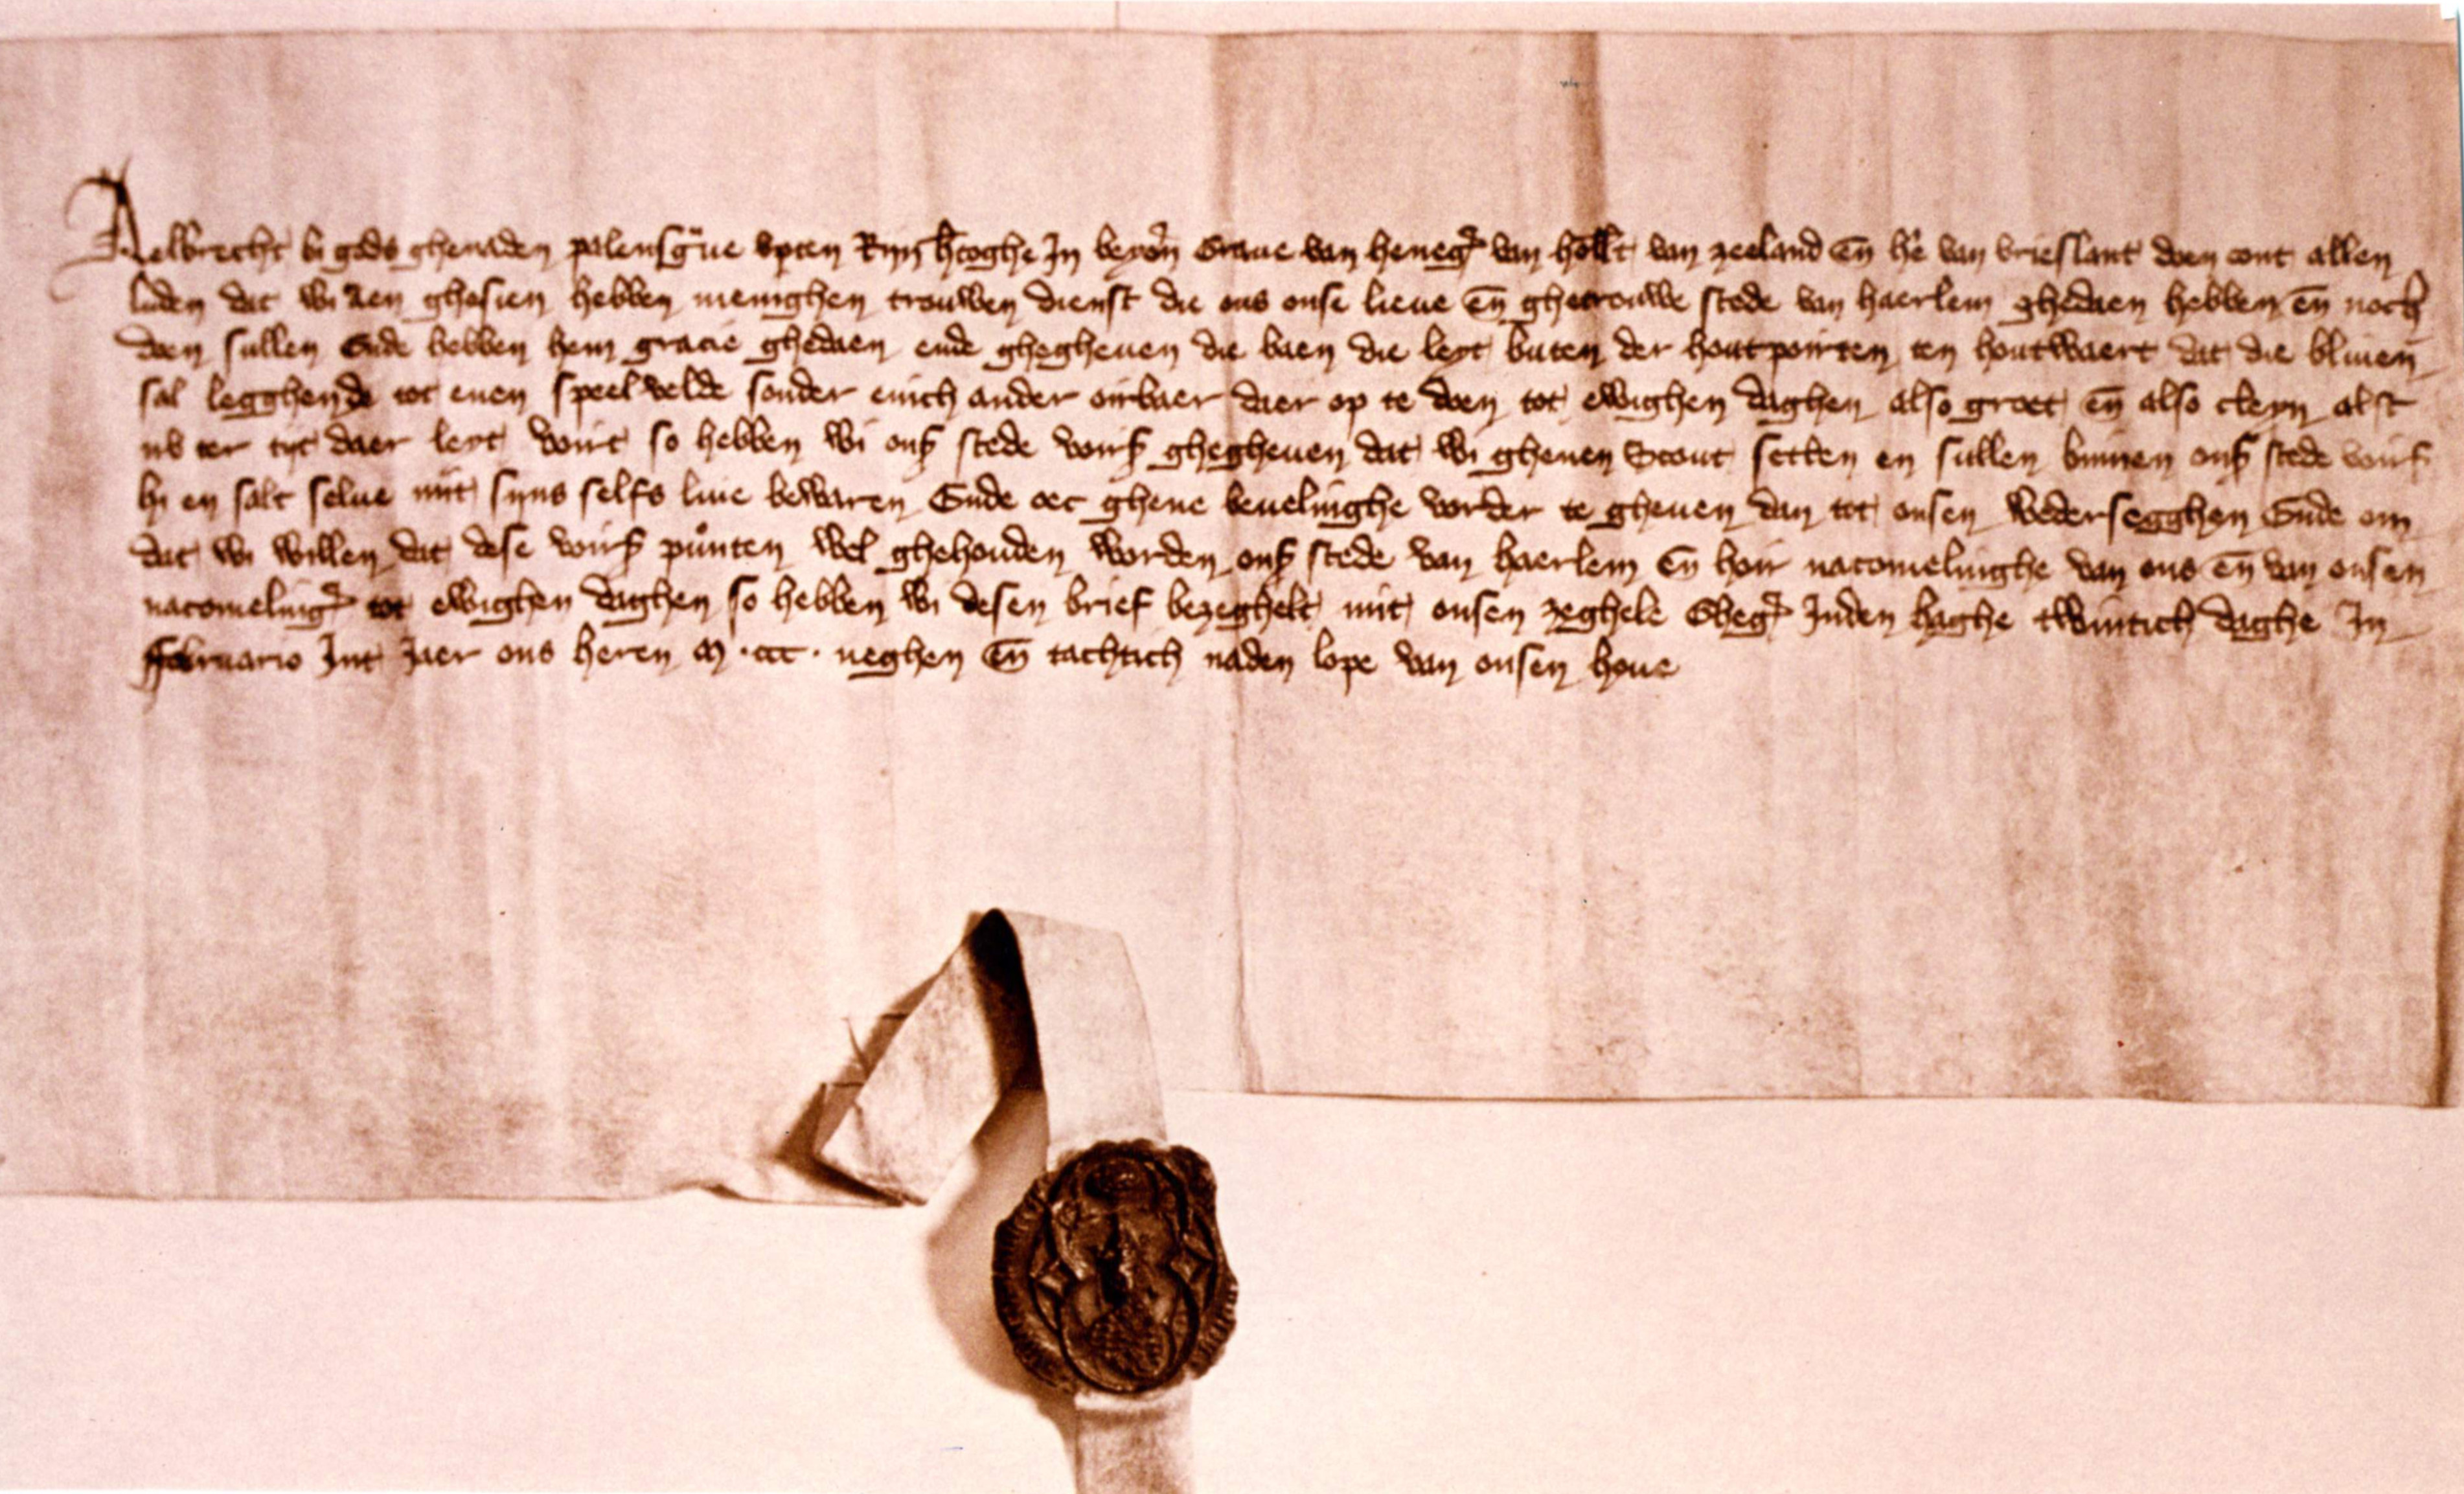 Aelbrecht bi gods ghenaden palensgue vpten Rijn htoghe In beyern Graue van heneg van hollt van zeeland en he van vrieslant doen cont allen
luden dat wi aen ghesien hebben menighen trouwen dienst die ons onse lieue en ghetrouwe stede van haerlem ghedaen hebben en noch
doen sullen Ende hebben hem gracie ghedaen ende ghegheuen die baen die leyt buten der houtpoirten ten houtwaert dat die bliuen
sal legghende tot enen speelvelde sonder enich ander oirbaer daer op te doen tot ewighen daghen also groet en also cleyn alst
nv ter tijt daer leyt voirt so hebben wi ons stede voirs ghegheuen dat wi ghenen Scout setten en sullen binnen ons stede voirs
hi en salt selue mit sijns selfs liue bewaren Ende oec ghene beuelinghe vorder te gheuen dan tot onsen wedersegghen Ende om
dat wi willen dat dese voirs punten wel ghehouden worden ons stede van haerlem en hoir nacomelinghe van ons en van onsen
nacomeling tot ewighen daghen so hebben wi desen brief bezeghelt mit onsen zeghele Gheg Inden haghe twintich daghe In
ffebruario Int Jaer ons heren M .ccc. neghen en tachtich naden lope van onsen houe